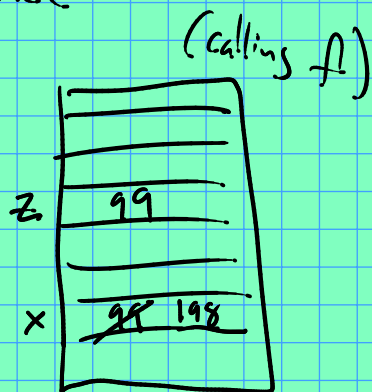 (calling f1)
z 99
x 99 198